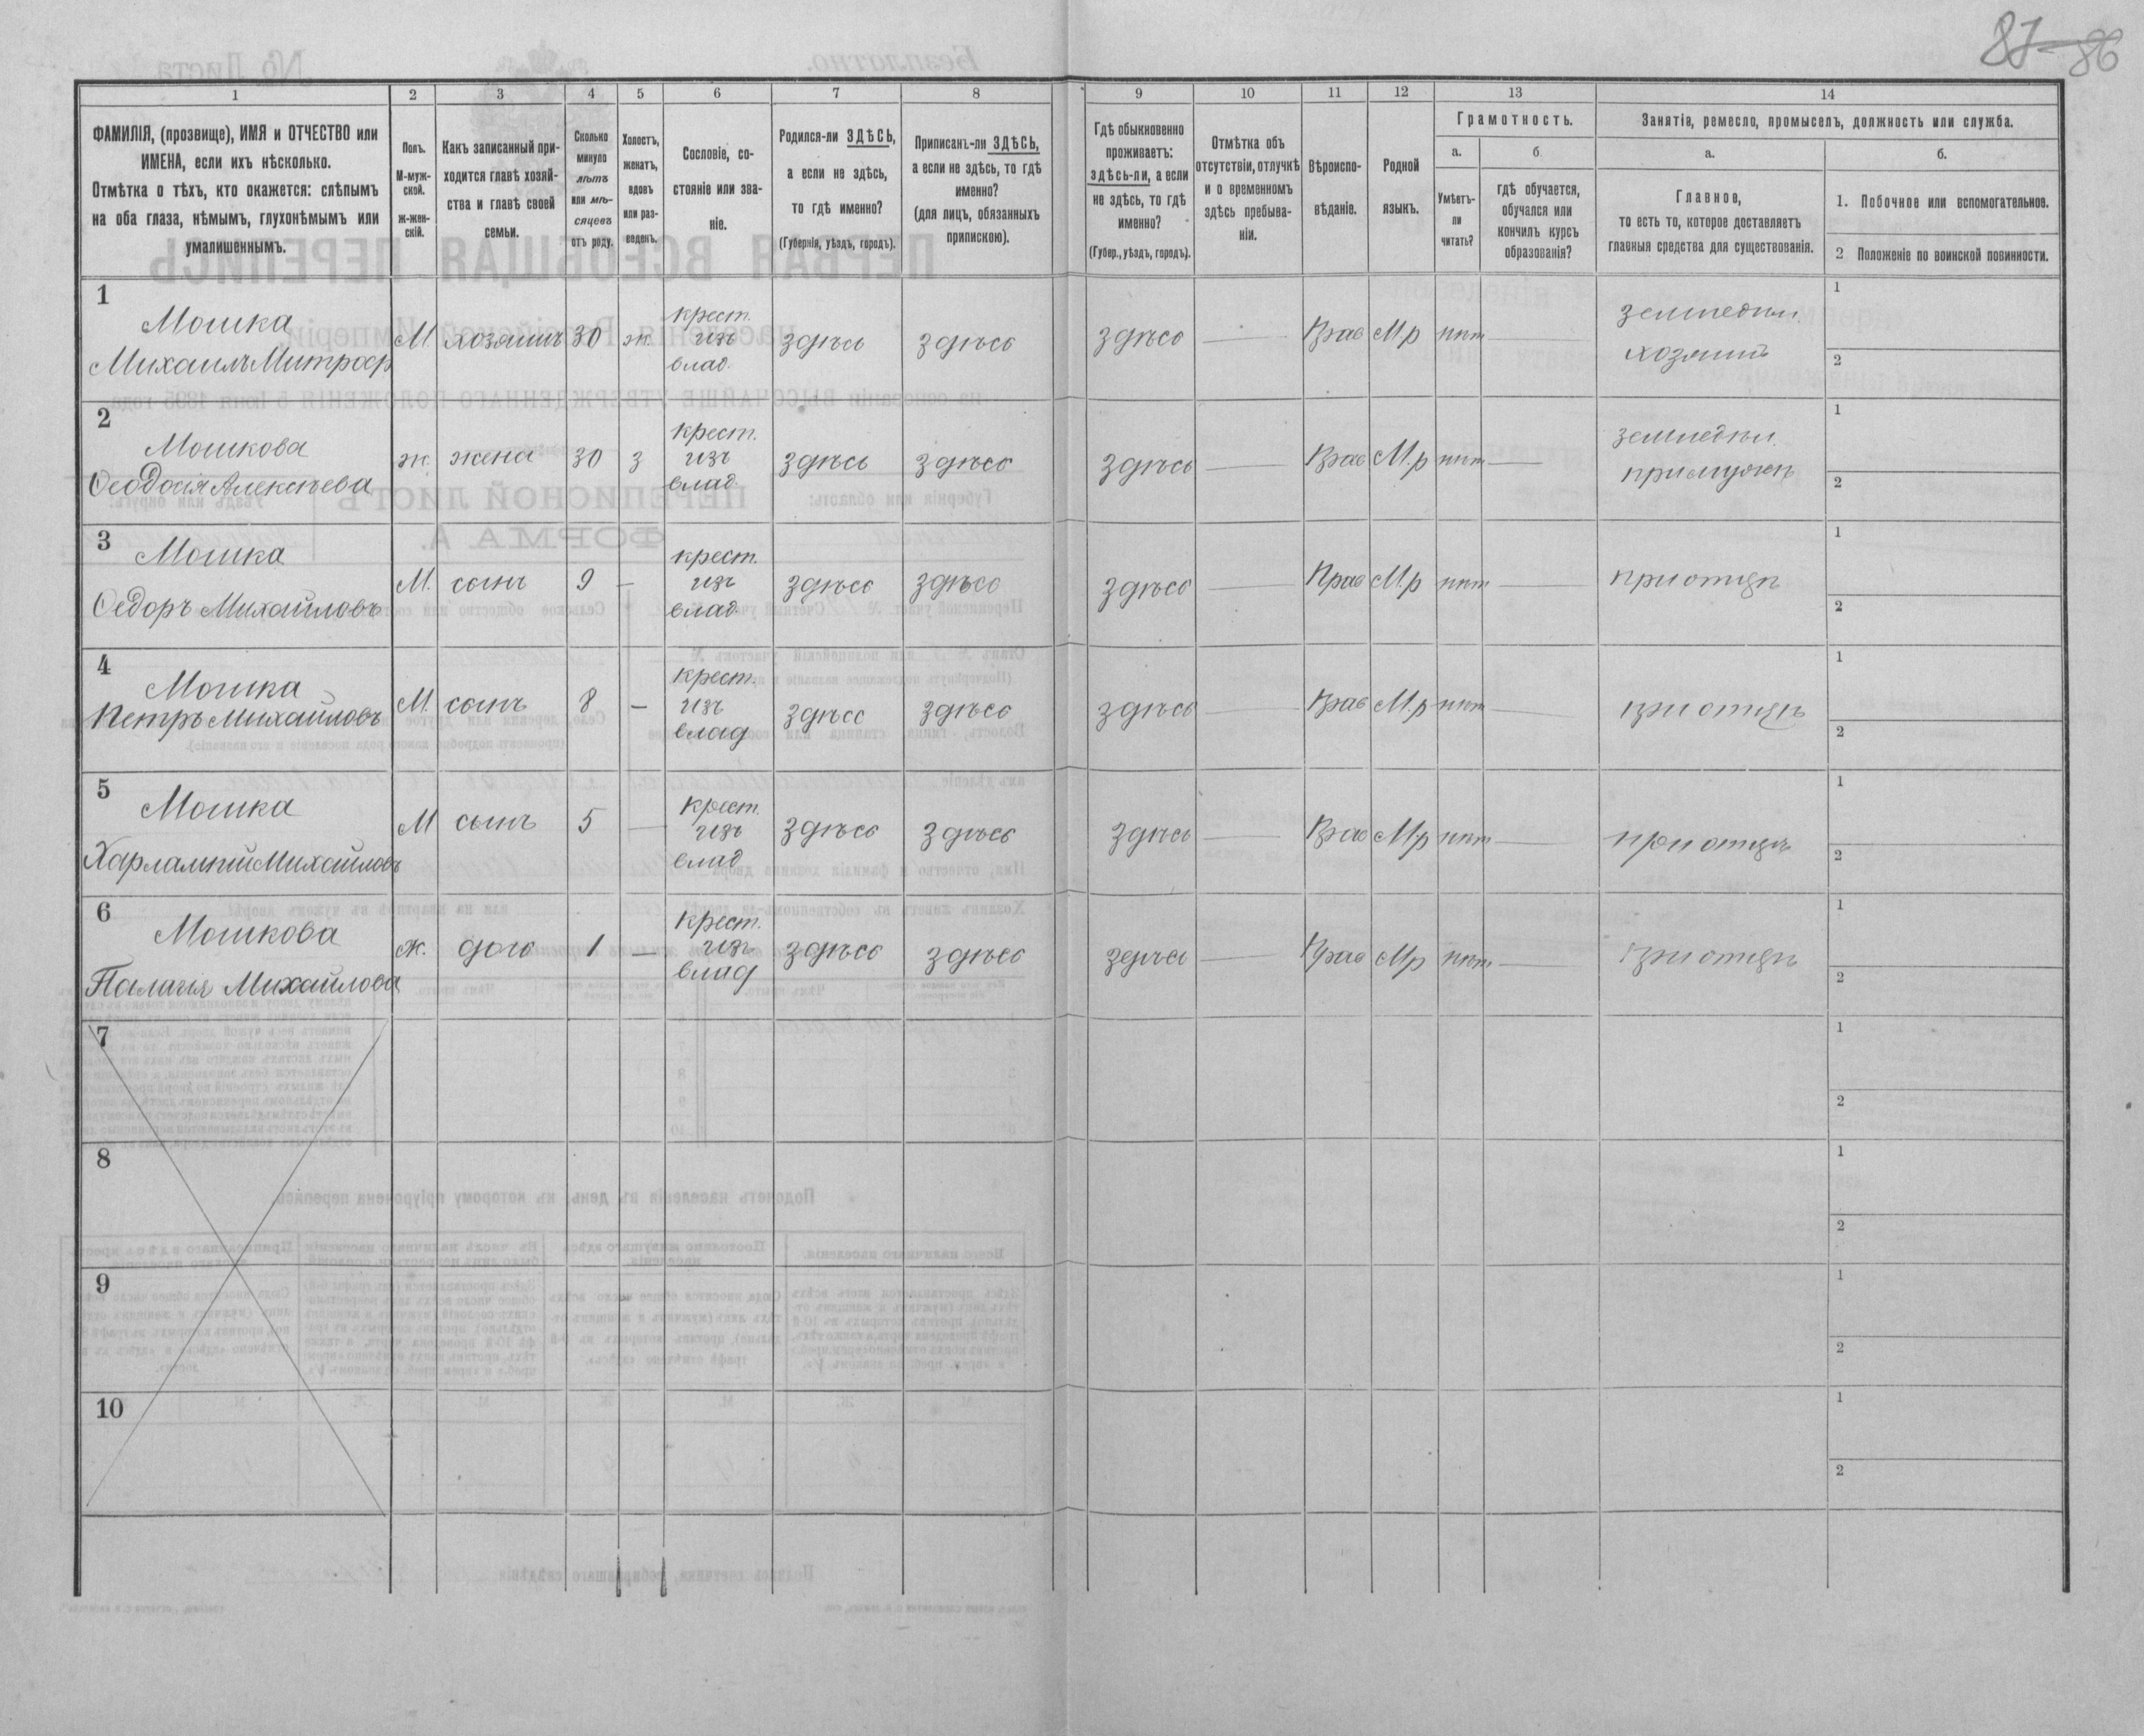 87 86
1 2 3 4 5 6 7 8 9 10 11 12 13 14
ФАМИЛІЯ, (прозвище), ИМЯ и ОТЧЕСТВО или
ИМЕНА, если ихъ нѣсколько.
Отмѣтка о тѣхъ, кто окажется: слѣпымъ
на оба глаза, нѣмымъ, глухонѣмымъ или
умалишеннымъ.
Полъ.
М-муж-
ской.
ж-жен-
скій.
Какъ записанный при-
ходится главѣ хозяй-
ства и главѣ своей
семьи.
Сколько
минуло
лѣтъ
или мѣ-
сяцевъ
отъ роду.
Холостъ,
женатъ,
вдовъ
или раз-
веденъ.
Сословіе, со-
стояніе или зва-
ніе.
Родился-ли ЗДѢСЬ,
а если не здѣсь,
то гдѣ именно?
(Губернія, уѣздъ, городъ).
Приписанъ-ли ЗДѢСЬ,
а если не здѣсь, то гдѣ
именно?
(для лицъ, обязанныхъ
припискою).
Гдѣ обыкновенно
проживаетъ:
здѣсь-ли, а если
не здѣсь, то гдѣ
именно?
(Губер., уѣздъ, городъ).
Отмѣтка объ
отсутствіи, отлучкѣ
и о временномъ
здѣсь пребыва-
ніи.
Вѣроиспо-
вѣданіе.
Родной
языкъ.
Грамотность.
а.
Умѣетъ-
ли
читать?
б
гдѣ обучается,
обучался или
кончилъ курсъ
образованія?
Занятіе, ремесло, промыселъ, должность или служба.
а.
Главное,
то есть то, которое доставляетъ
главныя средства для существованія.
б.
1. Побочное или вспомогательное.
2 Положеніе по воинской повинности.
1
Мошка
Михаилъ Митроф
М хозяинъ 30 ж. крест.
изъ
влад.
здѣсь здѣсь здѣсь — Прав М.р нѣт —
земледѣл.
хозяинъ
1
2
2
Мошкова
Ѳеодосія Алексѣева
ж. жена 30 з крест.
изъ
влад.
здѣсь здѣсь здѣсь — Прав М.р нѣт —
земледѣл.
при мужѣ
1
2
3
Мошка
Ѳедоръ Михайловъ
М. сынъ 9 — крест.
изъ
влад.
здѣсь здѣсь здѣсь — Прав М.р нѣт —
при отцѣ
1
2
4
Мошка
Петръ Михайловъ
М. сынъ 8 — крест.
изъ
влад
здѣсь здѣсь здѣсь — Прав М.р нѣт —
при отцѣ
1
2
5
Мошка
Харлампій Михайловъ
М сынъ 5 — крест.
изъ
влад
здѣсь здѣсь здѣсь — Прав М.р нѣт —
при отцѣ
1
2
6
Мошкова
Палагея Михайлова
ж. дочь 1 — крест.
изъ
влад
здѣсь здѣсь здѣсь — Прав М.р нѣт —
при отцѣ
1
2
7
1
2
8
1
2
9
1
2
10
1
2